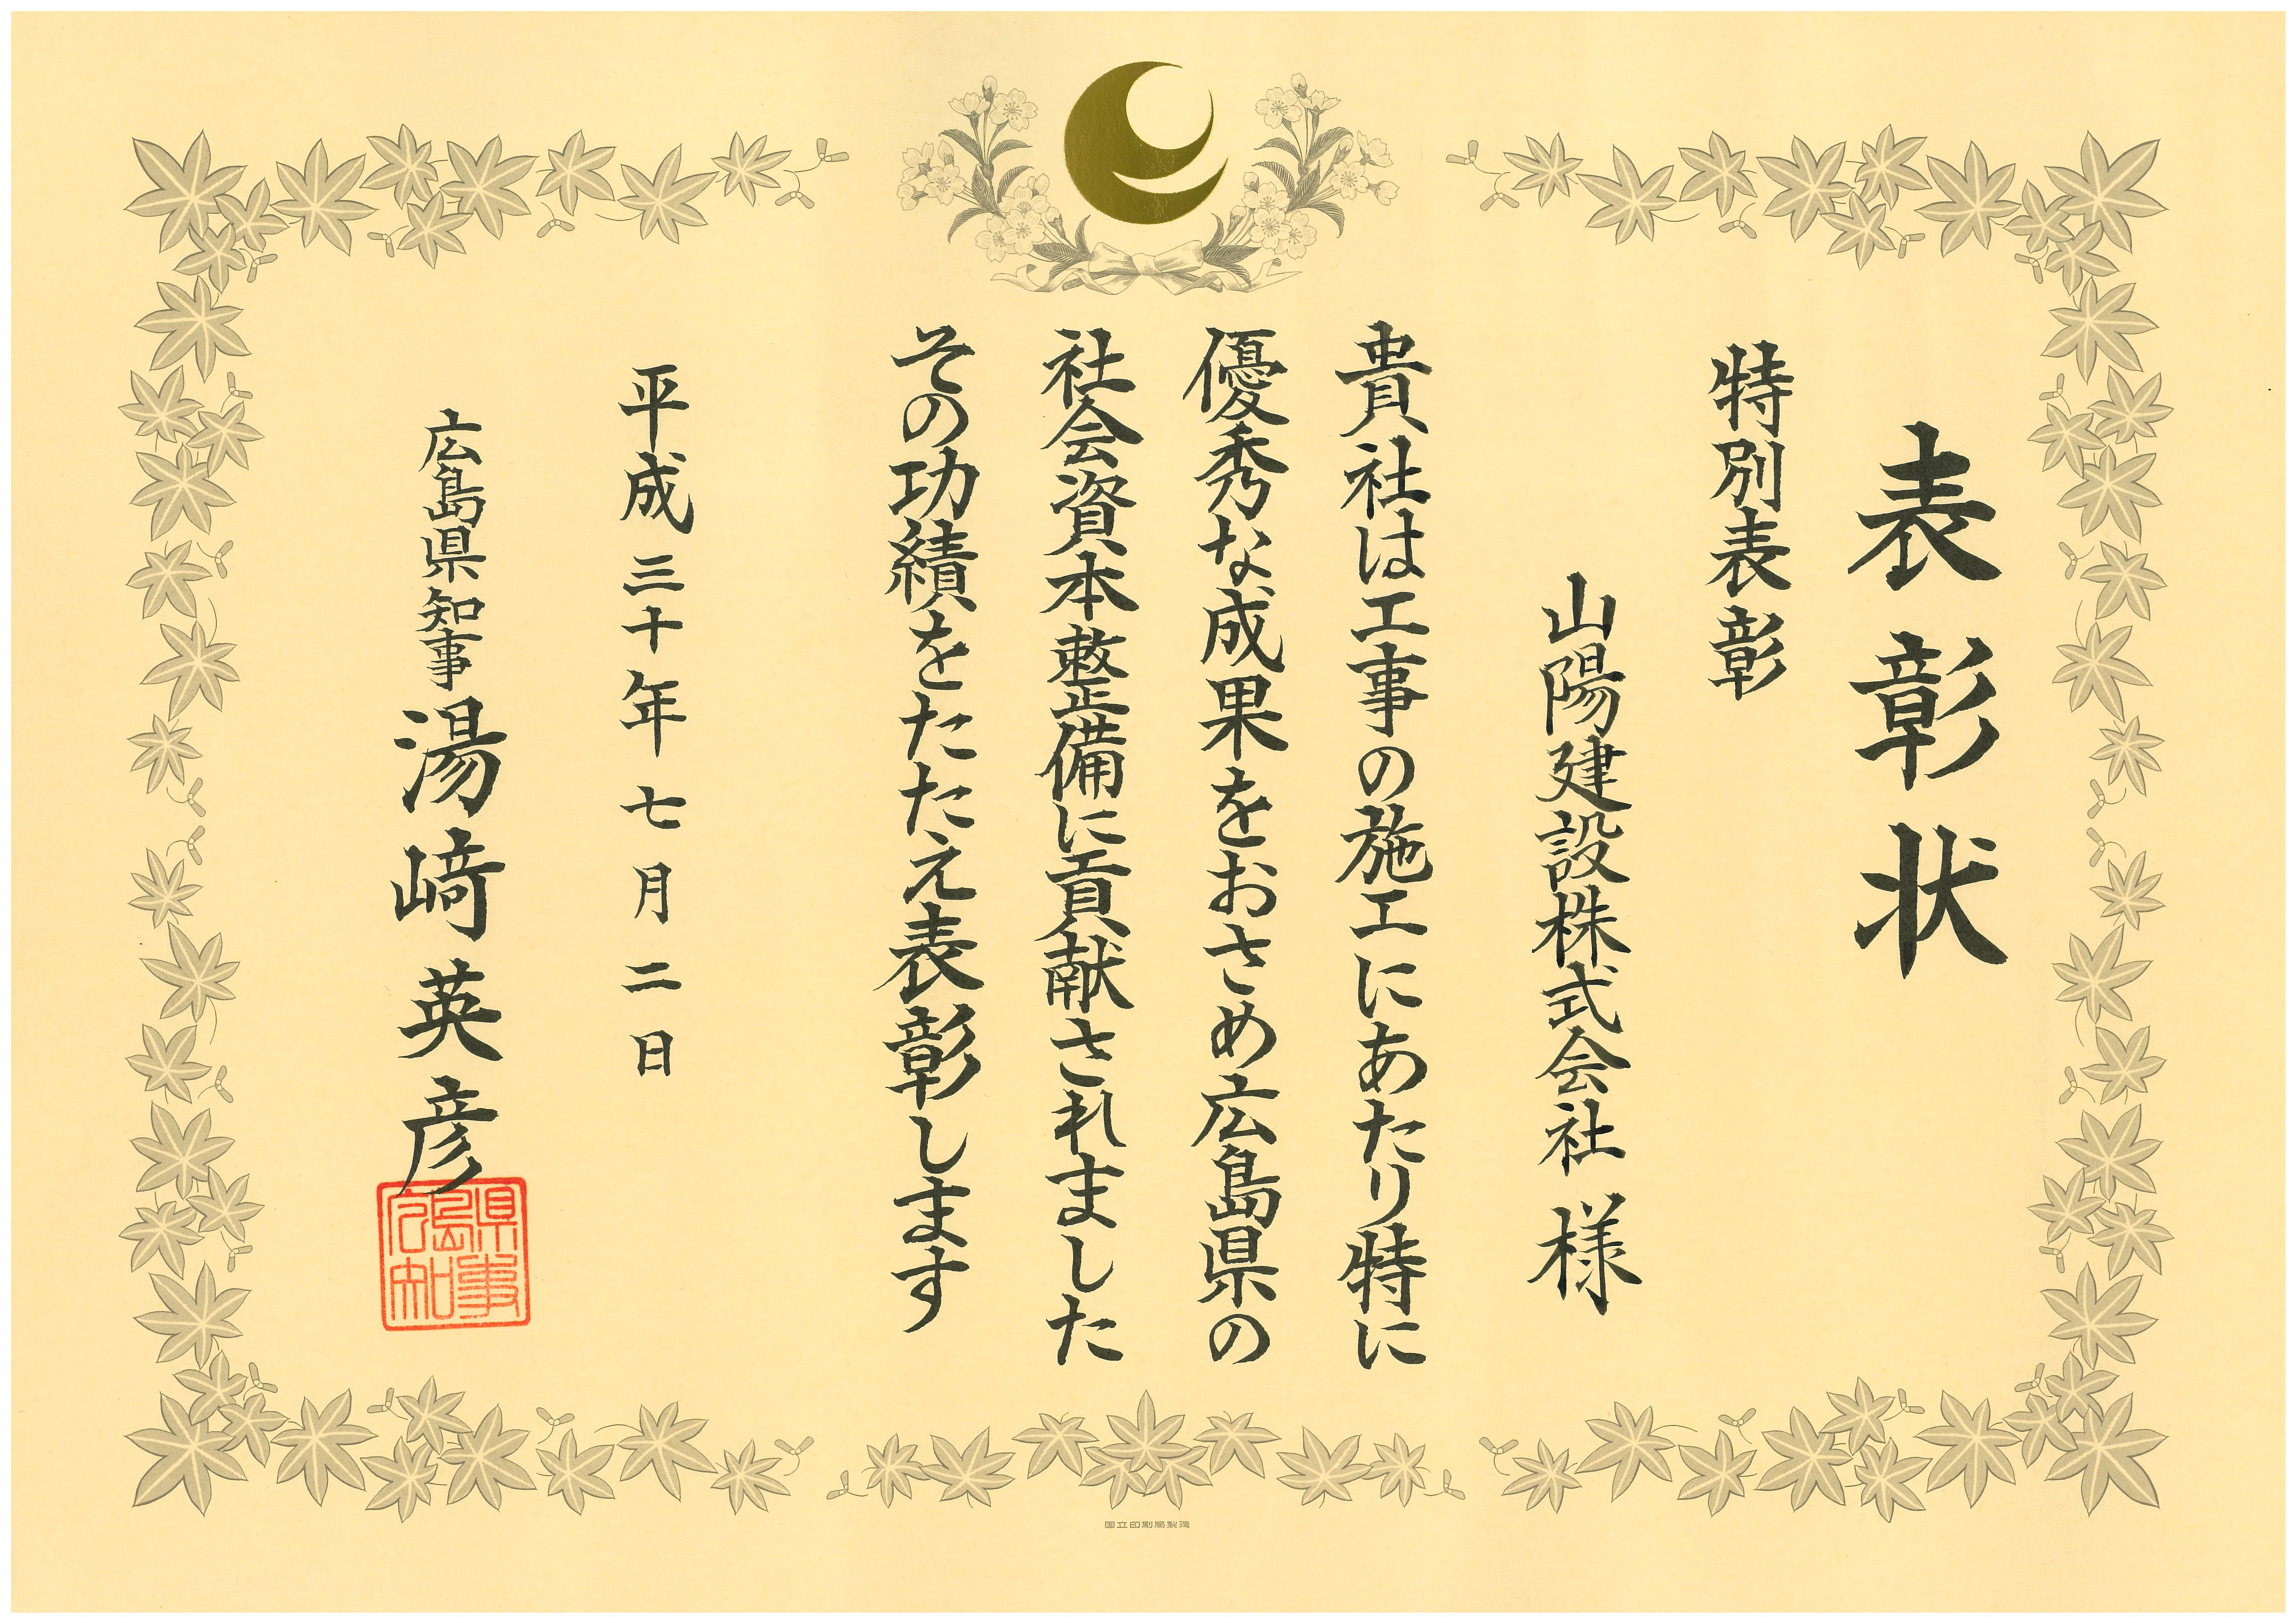 表彰状
特別表彰
山陽建設株式会社 様
貴社は工事の施工にあたり特に
優秀な成果をおさめ広島県の
社会資本整備に貢献されました
その功績をたたえ表彰します
平成三十年七月二日
広島県知事 湯﨑英彦
広島県知事
国立印刷局製造